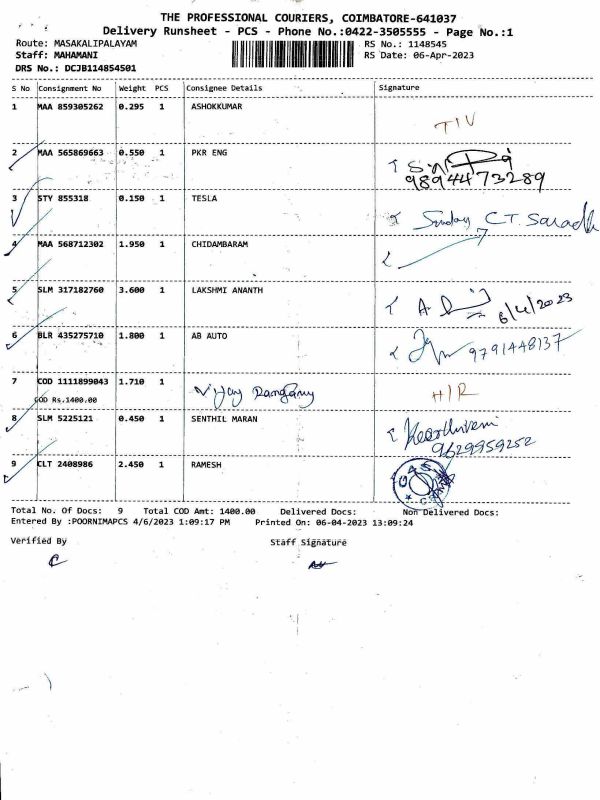 THE PROFESSIONAL COURIERS, COIMBATORE-641037
Delivery Runsheet - PCS - Phone No.:0422-3505555 - Page No.:1
Route: MASAKALIPALAYAM RS No.: 1148545
Staff: MAHAMANI RS Date: 06-Apr-2023
DRS No.: DCJB114854501
S No Consignment No Weight PCS Consignee Details Signature
1 MAA 859305262 0.295 1 ASHOKKUMAR
2 MAA 565869663 0.550 1 PKR ENG
9894473289
3 STY 855318 0.150 1 TESLA
4 MAA 568712302 1.950 1 CHIDAMBARAM
5 SLM 317182760 3.600 1 LAKSHMI ANANTH
6/4/2023
6 BLR 435275710 1.800 1 AB AUTO
9791448137
7 COD 1111899043 1.710 1
COD Rs.1400.00
8 SLM 5225121 0.450 1 SENTHIL MARAN
9629959252
9 CLT 2408986 2.450 1 RAMESH
Total No. Of Docs: 9 Total COD Amt: 1400.00 Delivered Docs: Non Delivered Docs:
Entered By :POORNIMAPCS 4/6/2023 1:09:17 PM Printed On: 06-04-2023 13:09:24
Verified By Staff Signature